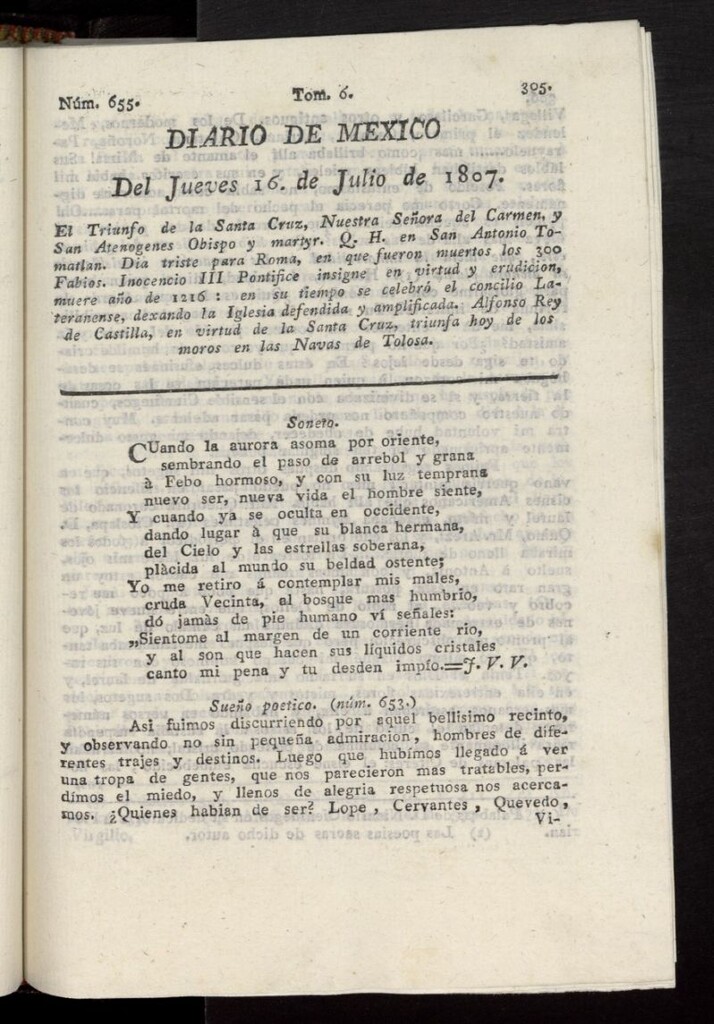 Núm. 655. Tom. 6. 305.
DIARIO DE MEXICO
Del Jueves 16. de Julio de 1807.
El Triunfo de la Santa Cruz, Nuestra Señora del Carmen, y
San Atenogenes Obispo y martyr. Q. H. en San Antonio To-
matlan. Dia triste para Roma, en que fueron muertos los 300
Fabios. Inocencio III Pontifice insigne en virtud y erudicion,
muere año de 1216 : en su tiempo se celebró el concilio La-
teranense, dexando la Iglesia defendida y amplificada. Alfonso Rey
de Castilla, en virtud de la Santa Cruz, triunfa hoy de los
moros en las Navas de Tolosa.
Soneto.
CUando la aurora asoma por oriente,
sembrando el paso de arrebol y grana
à Febo hormoso, y con su luz temprana
nuevo ser, nueva vida el hombre siente,
Y cuando ya se oculta en occidente,
dando lugar à que su blanca hermana,
del Cielo y las estrellas soberana,
plàcida al mundo su beldad ostente;
Yo me retiro á contemplar mis males,
cruda Vecinta, al bosque mas humbrio,
dó jamàs de pie humano ví señales:
„Sientome al margen de un corriente rio,
y al son que hacen sus líquidos cristales
canto mi pena y tu desden impío.=J. V. V.
Sueño poetico. (núm. 653.)
Asi fuimos discurriendo por aquel bellisimo recinto,
y observando no sin pequeña admiracion, hombres de dife-
rentes trajes y destinos. Luego que hubímos llegado á ver
una tropa de gentes, que nos parecieron mas tratables, per-
dímos el miedo, y llenos de alegria respetuosa nos acerca-
mos. ¿Quienes habian de ser? Lope, Cervantes, Quevedo,
Vi-